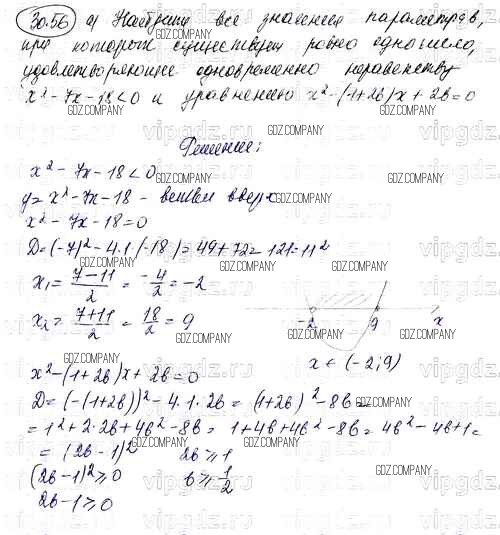 30.56 а) Найдите все значения параметров,
при которых существует ровно одно число,
удовлетворяющее одновременно неравенству
x² - 7x - 18 < 0 и уравнению x² - (1+2b)x + 2b = 0
GDZ.COMPANY
Решение:
x² - 7x - 18 < 0
y = x² - 7x - 18 - ветви вверх
x² - 7x - 18 = 0
D = (-7)² - 4·1·(-18) = 49 + 72 = 121 = 11²
x₁ = (7-11)/2 = -4/2 = -2
x₂ = (7+11)/2 = 18/2 = 9
-2 9 x
x ∈ (-2; 9)
x² - (1+2b)x + 2b = 0
D = (-(1+2b))² - 4·1·2b = (1+2b)² - 8b =
= 1² + 2·2b + 4b² - 8b = 1 + 4b + 4b² - 8b = 4b² - 4b + 1 =
= (2b-1)² 2b ≥ 1
(2b-1)² ≥ 0 b ≥ 1/2
2b - 1 ≥ 0
vipgdz.ru